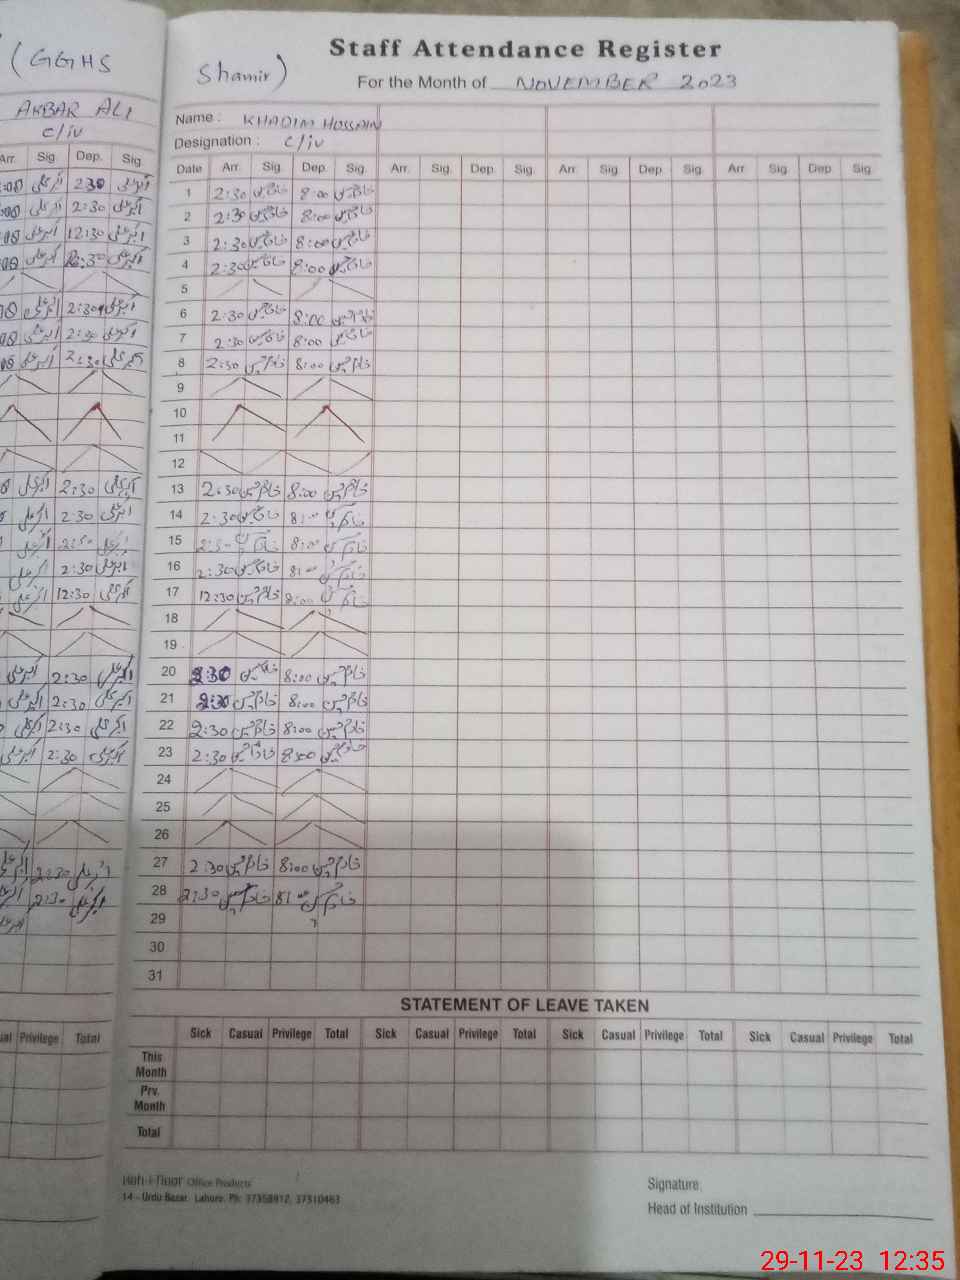 (GGHS
AKBAR ALI
c/iv
Arr. Sig Dep. Sig
2:30 اکبر علی
2:30 اکبر علی
12:30 اکبر علی
2:30 اکبر علی
2:30 اکبر علی
2:30 اکبر علی
2:30 اکبر علی
2:30 اکبر علی
2:30 اکبر علی
2:30 اکبر علی
12:30 اکبر علی
2:30 اکبر علی
2:30 اکبر علی
2:30 اکبر علی
2:30 اکبر علی
2:30 اکبر علی
2:30 اکبر علی
Privilege Total
Staff Attendance Register
Shamir)
For the Month of NOVEMBER 2023
Name : KHADIM HUSSAIN
Designation : c/iv
Date Arr. Sig. Dep. Sig. Arr. Sig. Dep. Sig. Arr. Sig. Dep. Sig. Arr. Sig. Dep. Sig.
1 2:30 خادم حسین 8:00 خادم حسین
2 2:30 خادم حسین 8:00 خادم حسین
3 2:30 خادم حسین 8:00 خادم حسین
4 2:30 خادم حسین 8:00 خادم حسین
5
6 2:30 خادم حسین 8:00 خادم حسین
7 2:30 خادم حسین 8:00 خادم حسین
8 2:30 خادم حسین 8:00 خادم حسین
9
10
11
12
13 2:30 خادم حسین 8:00 خادم حسین
14 2:30 خادم حسین 8:00 خادم حسین
15 2:30 خادم حسین 8:00 خادم حسین
16 2:30 خادم حسین 8:00 خادم حسین
17 12:30 خادم حسین 8:00 خادم حسین
18
19
20 2:30 خادم حسین 8:00 خادم حسین
21 2:30 خادم حسین 8:00 خادم حسین
22 2:30 خادم حسین 8:00 خادم حسین
23 2:30 خادم حسین 8:00 خادم حسین
24
25
26
27 2:30 خادم حسین 8:00 خادم حسین
28 2:30 خادم حسین 8:00 خادم حسین
29
30
31
STATEMENT OF LEAVE TAKEN
Sick Casual Privilege Total Sick Casual Privilege Total Sick Casual Privilege Total Sick Casual Privilege Total
This Month
Prv. Month
Total
Koh-i-noor Office Products
14 - Urdu Bazar, Lahore. Ph: 37358912, 37310463
Signature.
Head of Institution
29-11-23 12:35